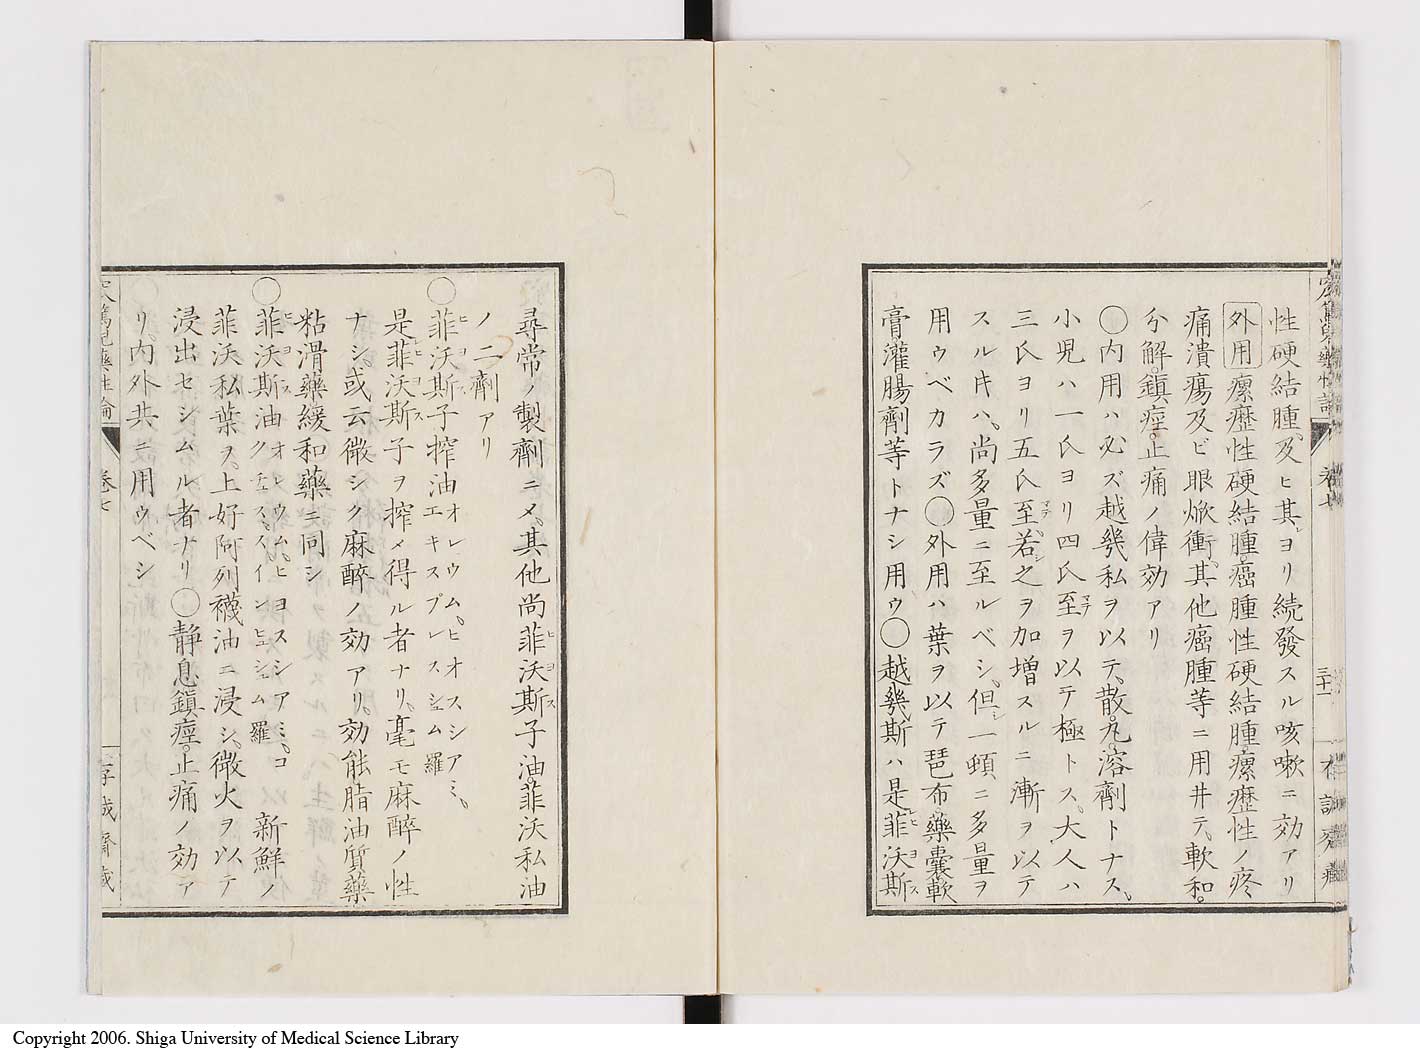 性硬結腫、及ヒ其ヨリ続發スル咳嗽ニ効アリ
外用 瘰癧性硬結腫癌腫性硬結腫瘰癧性ノ疼
痛潰瘍及ビ眼焮衝、其他癌腫等ニ用井テ、軟和。
分解。鎮痙。止痛ノ偉効アリ
○内用ハ必ズ越幾私ヲ以テ、散。丸。溶劑トナス、
小児ハ一氏ヨリ四氏至ヲ以テ極トス、大人ハ
三氏ヨリ五氏至、若之ヲ加増スルニ漸ヲ以テ
スル片ハ、尚多量ニ至ルベシ、但一頓ニ多量ヲ
用ウベカラズ○外用ハ葉ヲ以テ琶布藥囊軟
膏灌腸劑等トナシ用ウ○越幾斯ハ是菲沃斯
尋常ノ製劑ニメ、其他尚菲沃斯子油。菲沃私油
ノ二劑アリ
○菲沃斯子搾油 オレウム、ヒオスシアミ、エキスプレスシュム 羅
是菲沃斯子ヲ搾メ得ル者ナリ、毫モ麻醉ノ性
ナシ或云微シク麻醉ノ効アリ、効能脂油質藥
粘滑藥緩和藥ニ同シ
○菲沃斯油 オレウム、ヒヨスシアミ、コクチュス、インヒュシュム 羅 新鮮ノ
菲沃私葉ヲ、上好阿列襪油ニ浸シ、微火ヲ以テ
浸出セシムル者ナリ○静息鎮痙。止痛ノ効ア
リ、内外共ニ用ウベシ
篤児藥性論
卷七
三十二